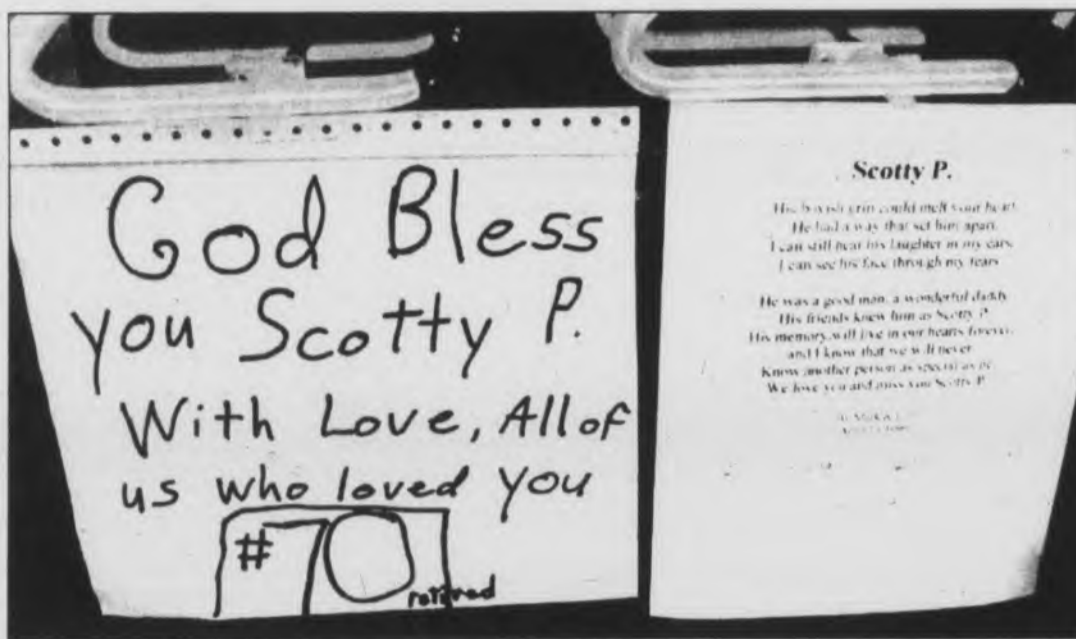 God Bless
you Scotty P.
With Love, All of
us who loved you
#70
retired
Scotty P.
His boyish grin could melt your heart.
He had a way that set him apart.
I can still hear his laughter in my ears,
I can see his face through my tears
He was a good man, a wonderful daddy
His friends knew him as Scotty P.
His memory will live in our hearts forever,
and I know that we will never
Know another person as special as
We love you and miss you Scotty P.